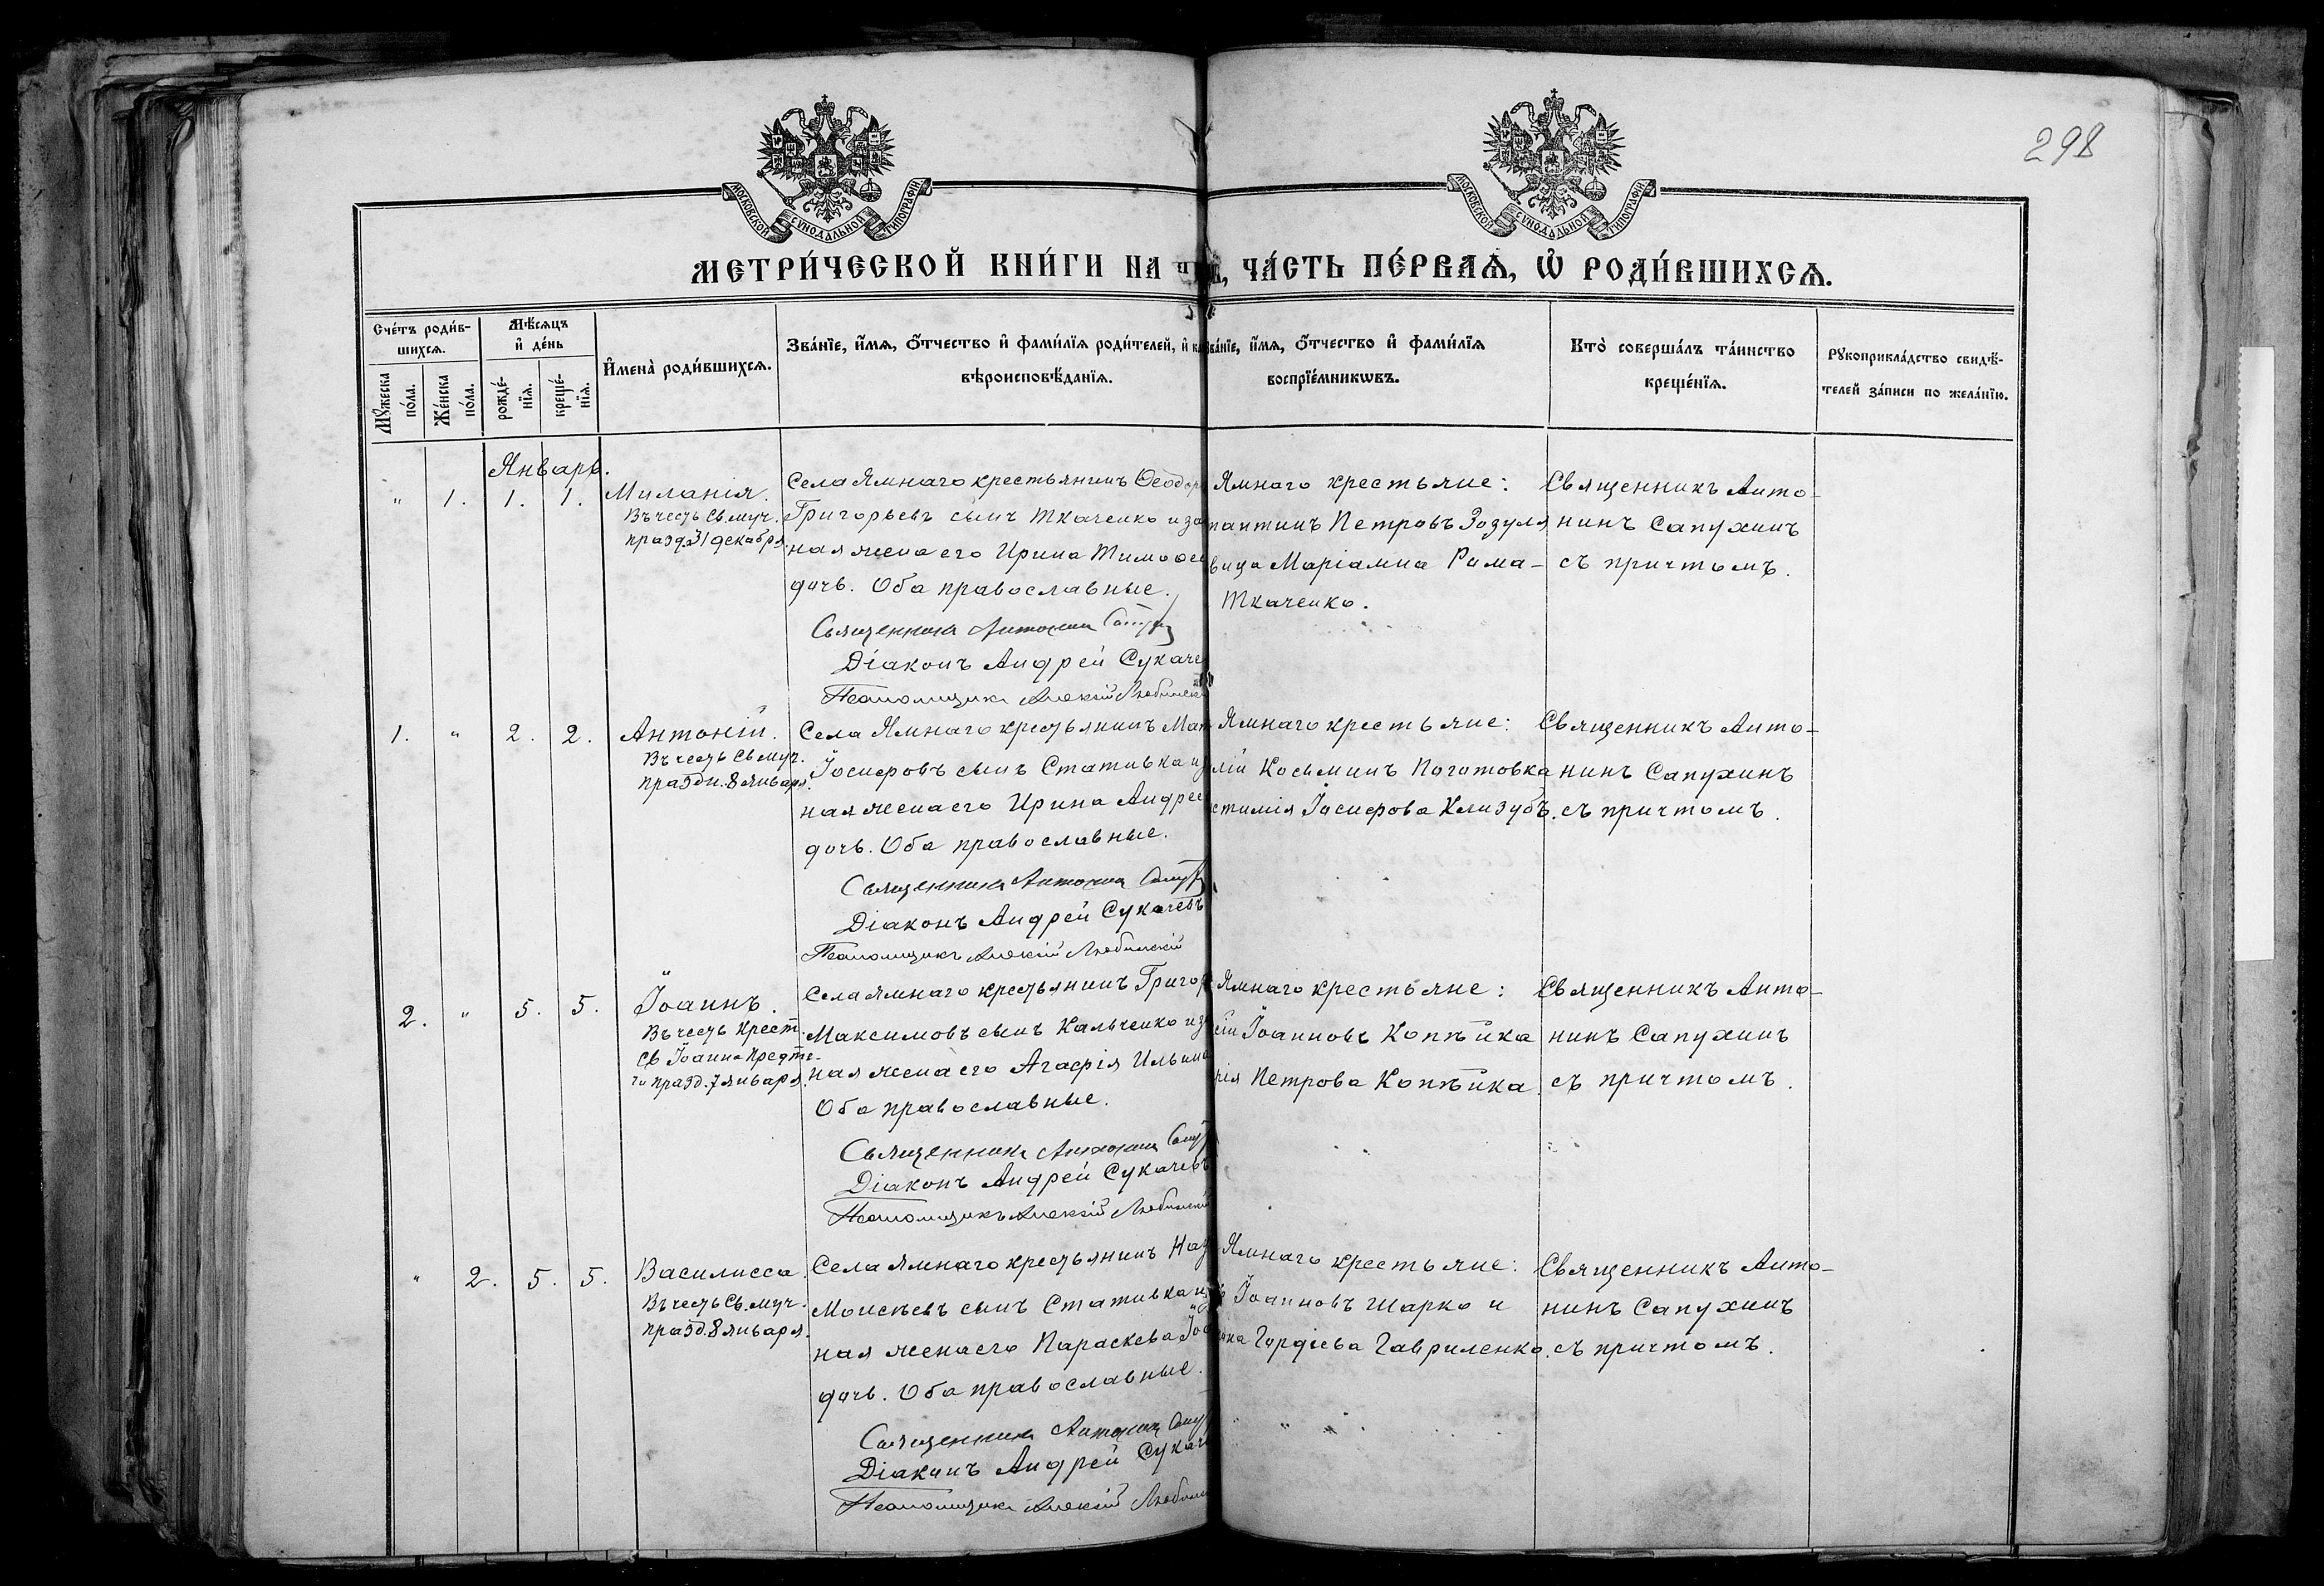 298
МОСКОВСКОЙ СѴНОДАЛЬНОЙ ТИПОГРАФІИ
МОСКОВСКОЙ СѴНОДАЛЬНОЙ ТИПОГРАФІИ
МЕТРИ́ЧЕСКОЙ КНИ́ГИ НА ЧА́СТЬ ПЕ́РВАѦ, Ѡ҆ РОДИ́ВШИХСѦ.
Сче́тъ роди́в-
шихсѧ.
Мꙋ́жеска по́ла.
Же́нска по́ла.
Мѣ́сѧцъ
и҆ де́нь
рожде́-
нїѧ.
креще́-
нїѧ.
И҆мена̀ роди́вшихсѧ.
Зва́нїе, и҆́мѧ, ѻ҆́тчество и҆ фами́лїѧ роди́телей, и҆
вѣроисповѣ́данїѧ.
Зва́нїе, и҆́мѧ, ѻ҆́тчество и҆ фами́лїѧ
воспрїе́мникѡвъ.
Кто̀ соверша́лъ та́инство
креще́нїѧ.
Рꙋкоприкла́дство свидѣ́-
телей за́писи по жела́нїю.
Январь.
" 1. 1. 1.
Миланія.
Въ честь Св. муч.
празд. 31 декабря.
Села Ямнаго крестьянинъ Ѳеодоръ
Григорьевъ сынъ Ткаченко и за
ная жена его Ирина Тимоѳее
дочь. Оба православные.
Священникъ Антонинъ
Діаконъ Андрей Сукаче
Псаломщикъ Алексій Любинскій
Ямнаго крестьяне:
тантинъ Петровъ Зозуля
вица Маріамна Рома-
Ткаченко.
Священникъ Анто-
нинъ Сапухинъ
съ причтомъ.
1. " 2. 2.
Антоній.
Въ честь Св муч.
праздн. 8 января.
Села Ямнаго крестьянинъ
Іосифовъ сынъ Стативка и
ная жена его Ирина Андрее
дочь. Оба православные.
Священникъ Антонинъ
Діаконъ Андрей Сукачевъ
Псаломщикъ Алексій Любинскій
Ямнаго крестьяне:
лій Косьминъ Паготовка
стимія Іосифова Клизубъ.
Священникъ Анто-
нинъ Сапухинъ
съ причтомъ.
2. " 5. 5.
Іоаннъ.
Въ честь Крест.
Св Іоанна Предте-
чи празд. 7 января.
Села Ямнаго крестьянинъ Григор
Максимовъ сынъ Кальченко и за
ная жена его Агафія Ильина
Оба православные.
Священникъ Антонинъ
Діаконъ Андрей Сукачевъ
Псаломщикъ Алексій Любинскій
Ямнаго крестьяне:
ей Іоанновъ Копѣйка
рія Петрова Копѣйка.
Священникъ Анто-
нинъ Сапухинъ
съ причтомъ.
" 2. 5. 5.
Василисса.
Въ честь Св. муч.
празд. 8 января.
Села Ямнаго крестьянинъ
Моисѣевъ сынъ Стативка и
ная жена его Параскева
дочь. Оба православные.
Священникъ Антонинъ
Діаконъ Андрей Сукаче
Псаломщикъ Алексій
Ямнаго крестьяне:
Іоанновъ Шарко и
Гордіева Гавриленко.
Священникъ Анто-
нинъ Сапухинъ
съ причтомъ.